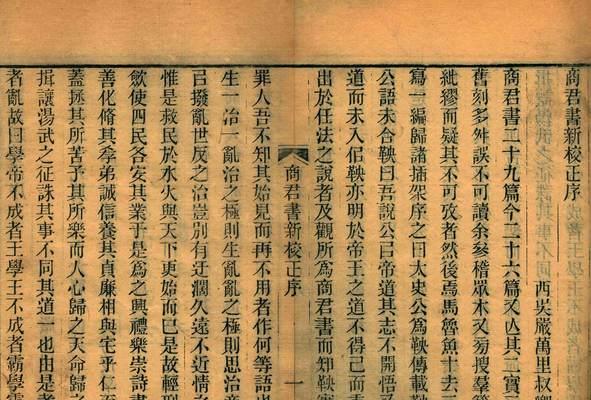 商君書新校正序
西吳嚴萬里叔卿
商君書二十九篇今二十六篇又亾其二實二
舊刻多舛誤不可讀余參稽眾本又旁搜羣
紕繆而疑其不可攷者然後焉馬魯魚十去三
寫一編歸諸插架序之曰大史公爲鞅傳載鞅
公語未合鞅曰吾說公㠯帝道其志不開悟
道而未入佀鞅亦明於帝王之道不得已而
出於任法之說者及觀所爲商君書而知鞅實
商君書新校正序
一
罪人吾不知其始見而再不用者作何等語
生一治一亂治之極則生亂亂之極則思治
㠯撥亂世反之治豈別有迂濶久遠不近情
惟是救民於水火與天下更始而已是故輕刑
斂使四民各安其業于是爲之興禮樂崇詩書
善化脩其孝弟誠信養其貞廉相與宅乎仁
蓋拯其所苦予其所樂而人心歸之天命歸
揖讓湯武之征誅其事不同其道一也由是
者亂故曰學帝不成者王學王不成者霸學霸